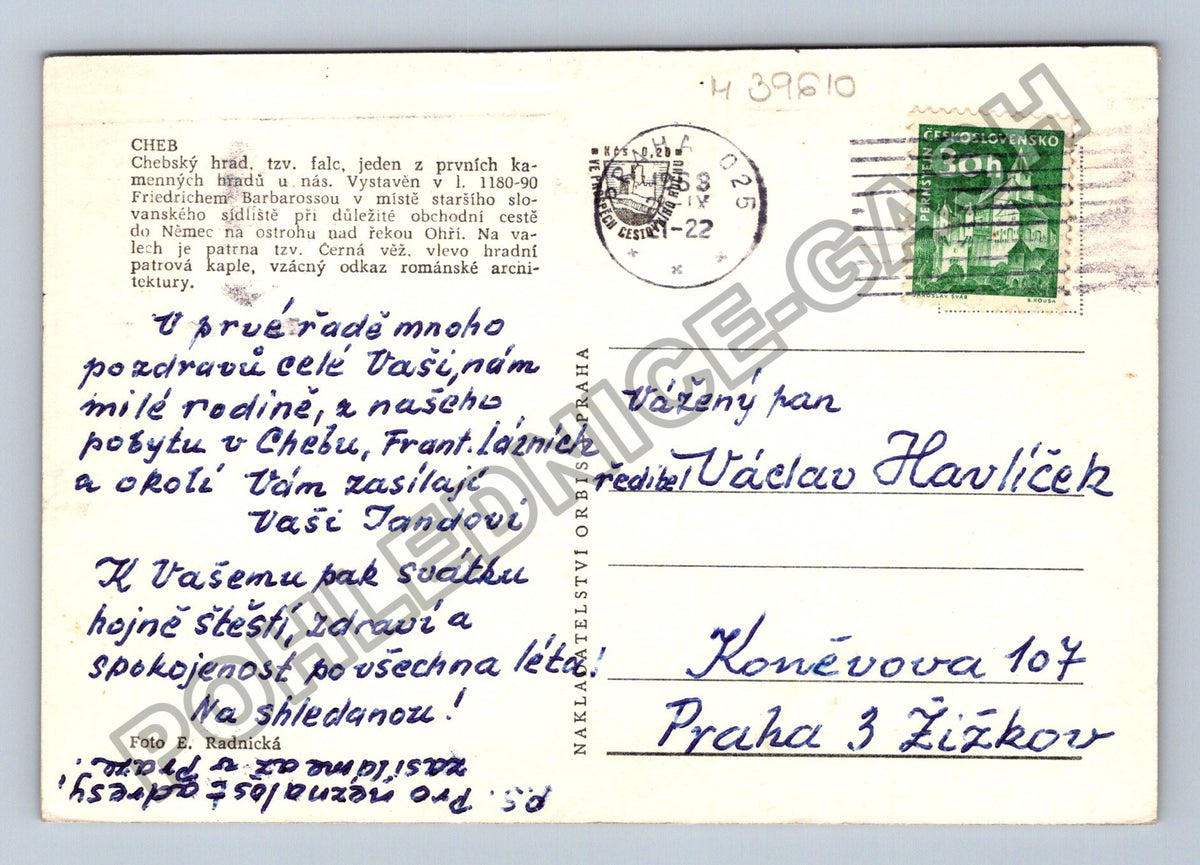 M 39610
CHEB
Chebský hrad, tzv. falc, jeden z prvních ka-
menných hradů u nás. Vystavěn v l. 1180-90
Friedrichem Barbarossou v místě staršího slo-
vanského sídliště při důležité obchodní cestě
do Němec na ostrohu nad řekou Ohří. Na va-
lech je patrna tzv. Černá věž, vlevo hradní
patrová kaple, vzácný odkaz románské archi-
tektury.
PRAHA 025
Kčs 0,20
VE PROSPĚCH CESTOVNÍHO RUCHU
68
IX
-22
ČESKOSLOVENSKO
30h
PERŠTEJN
JAROSLAV ŠVÁB
V prvé řadě mnoho
pozdravů celé Vaší, nám
milé rodině, z našeho
pobytu v Chebu, Frant. lázních
a okolí Vám zasílají
Vaši Jandovi
K Vašemu pak svátku
hojně štěstí, zdraví a
spokojenost po všechna léta!
Na shledanou!
Foto E. Radnická
P.S. Pro neznalost adresy,
zasíláme až v Praze.
NAKLADATELSTVÍ ORBIS, PRAHA
Vážený pan
ředitel Václav Havlíček
Koněvova 107
Praha 3 Žižkov
POHLEDNICE-GARH